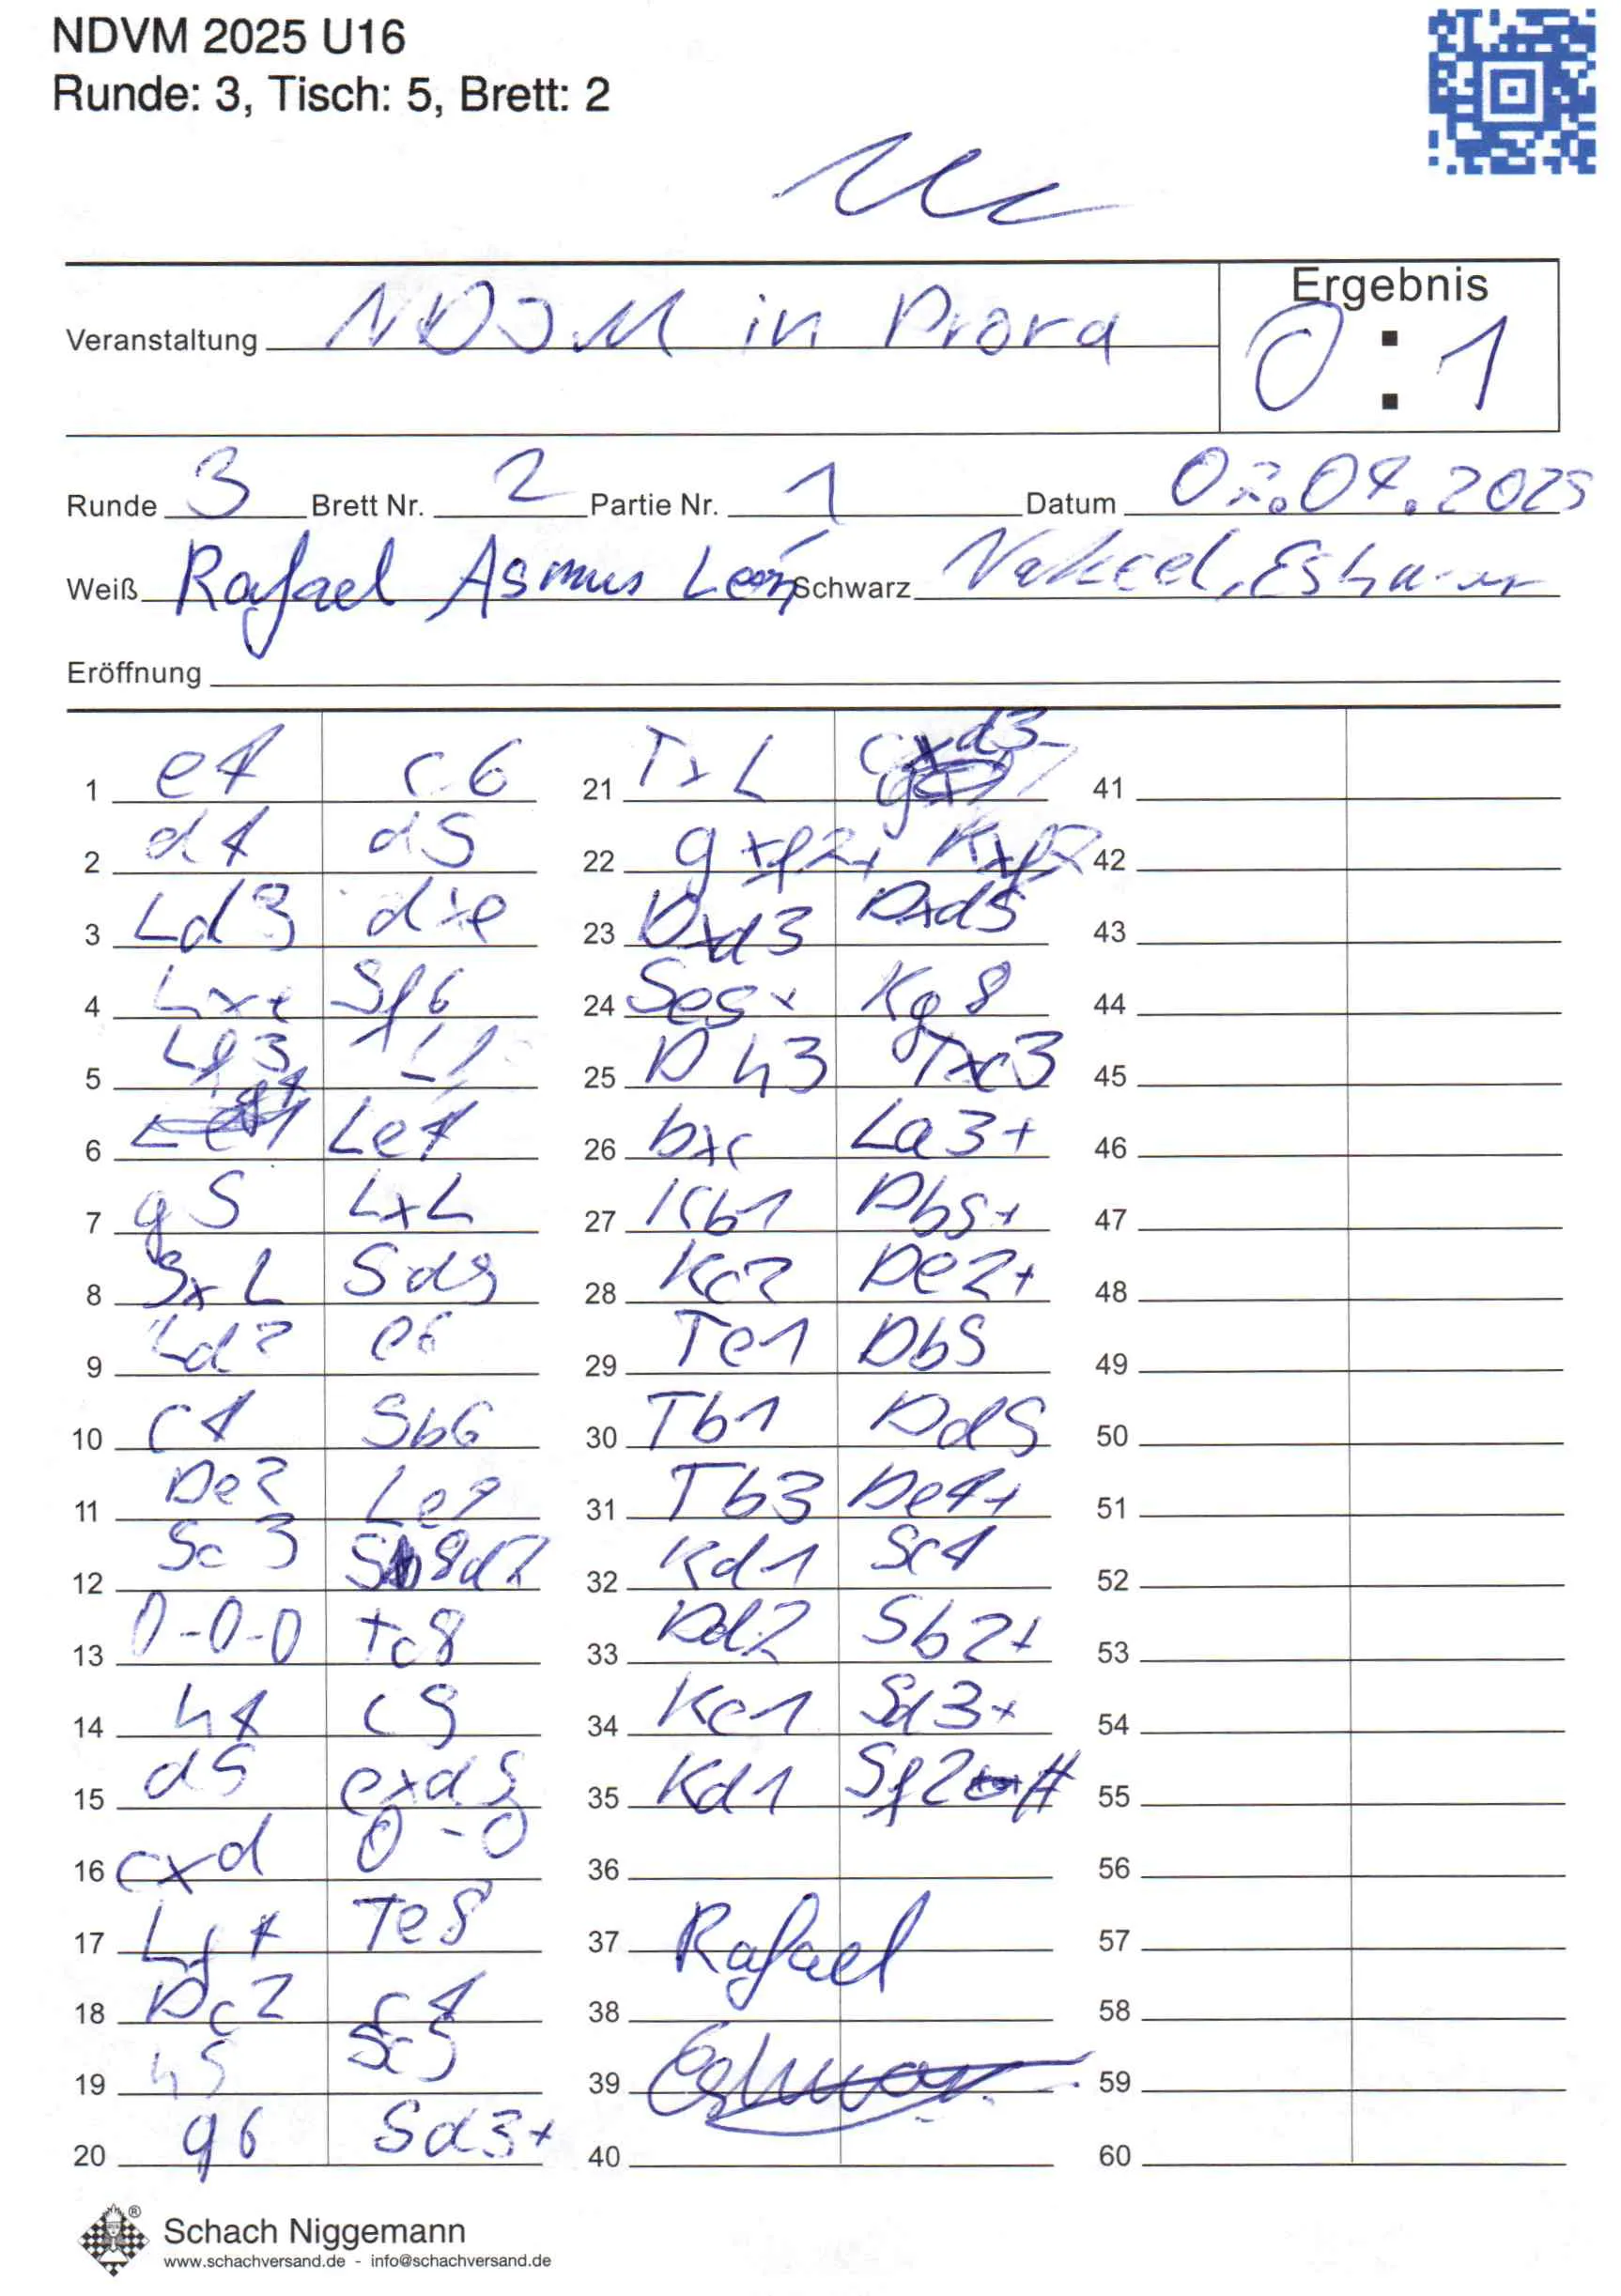 NDVM 2025 U16
Runde: 3, Tisch: 5, Brett: 2
Ergebnis
Veranstaltung NDJM in Prora 0 : 1
Runde 3 Brett Nr. 2 Partie Nr. 1 Datum 07.04.2025
Weiß Rafael Asmus León Schwarz
Eröffnung
1 e4 c6 21 TxL cxd3 41
2 d4 d5 22 gxf7+ Kxf7 42
3 Ld3 dxe 23 Dxd3 Dxd5 43
4 Lxe Sf6 24 Se5+ Kg8 44
5 Lf3 25 Dh3 Txc3 45
6 g4 Le4 26 bxc La3+ 46
7 g5 LxL 27 Kb1 Db5+ 47
8 SxL Sd5 28 Kc2 De2+ 48
9 Ld2 e6 29 Te1 Db5 49
10 c4 Sb6 30 Tb1 Dd5 50
11 De2 Le7 31 Tb3 De4+ 51
12 Sc3 S8d7 32 Kd1 Sc4 52
13 0-0-0 Tc8 33 Dd2 Sb2+ 53
14 h4 c5 34 Kc1 Sd3+ 54
15 d5 exd5 35 Kd1 Sf2# 55
16 cxd 0-0 36 56
17 Lf4 Te8 37 Rafael 57
18 Dc2 c4 38 58
19 h5 Sc5 39 59
20 g6 Sd3+ 40 60
®
Schach Niggemann
www.schachversand.de - info@schachversand.de